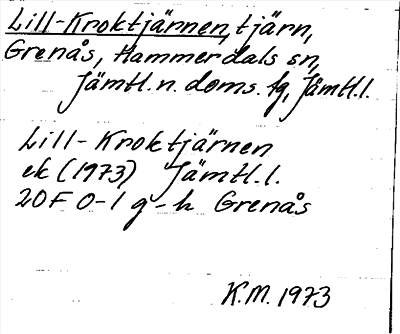 Lill-Kroktjärnen, tjärn,
Grenås, Hammerdals sn,
Jämtl. n. doms. tg, Jämtl. l.
Lill-Kroktjärnen
ek (1973) Jämtl. l.
20F 0-1 g-h Grenås
K.M. 1973